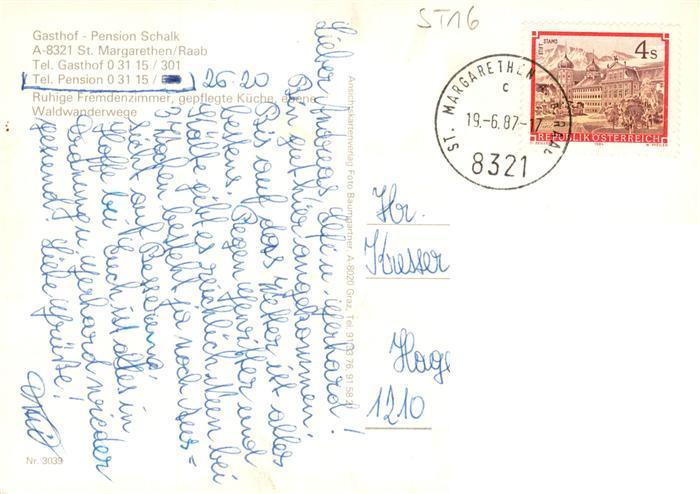 Gasthof - Pension Schalk
A-8321 St. Margarethen/Raab
Tel. Gasthof 0 31 15 / 301
Tel. Pension 0 31 15 / 26 20
Ruhige Fremdenzimmer, gepflegte Küche, ebene
Waldwanderwege
Lieber Andreas, Ilse u. Gerhard!
Bin gut hier angekommen.
Bis auf das Wetter ist alles
bestens. Regen, Gewitter und
Kälte gibt es reichlich. Aber bei
3 Wochen besteht ja noch Aus-
sicht auf Besserung.
Hoffe bei Euch ist alles in
Ordnung u. Gerhard wieder
gesund! Liebe Grüße!
Nr. 3039
Ansichtskartenverlag Foto Baumgartner, A-8020 Graz, Tel. 91 33 76, 91 58 2
ST16
4s
STIFT STAMS
REPUBLIK ÖSTERREICH
ST. MARGARETHEN
c
19.-6.87-17
8321
Hr.
Kresser
Hag
1210